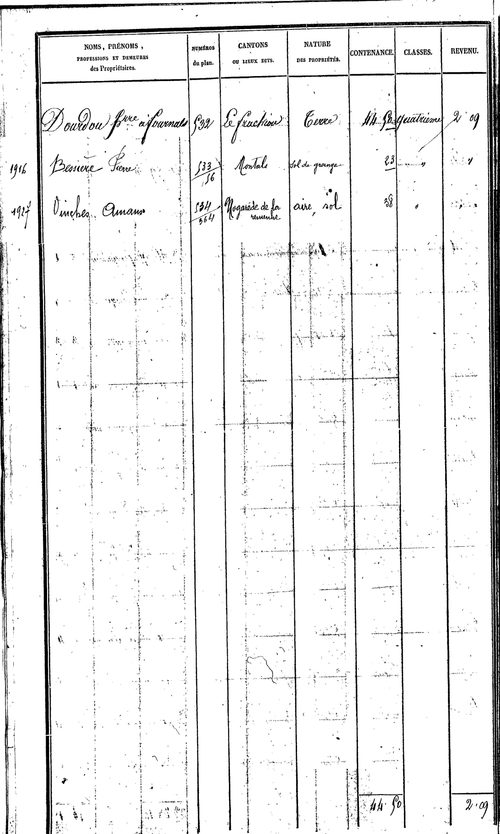 NOMS, PRÉNOMS, PROFESSIONS ET DEMEURES des Propriétaires. NUMÉROS du plan. CANTONS OU LIEUX DITS. NATURE DES PROPRIÉTÉS. CONTENANCE. CLASSES. REVENU.
Dourdou Pierre à fournals 532 Le fraction Terre 44 50 quatrième 2 09
1916 Bessière Pierre 533/56 Montals Sol de grange 23 " "
1927 Vinches Amans 534/564 Nogarède de la aire, sol 38 " "
44 50 2.09